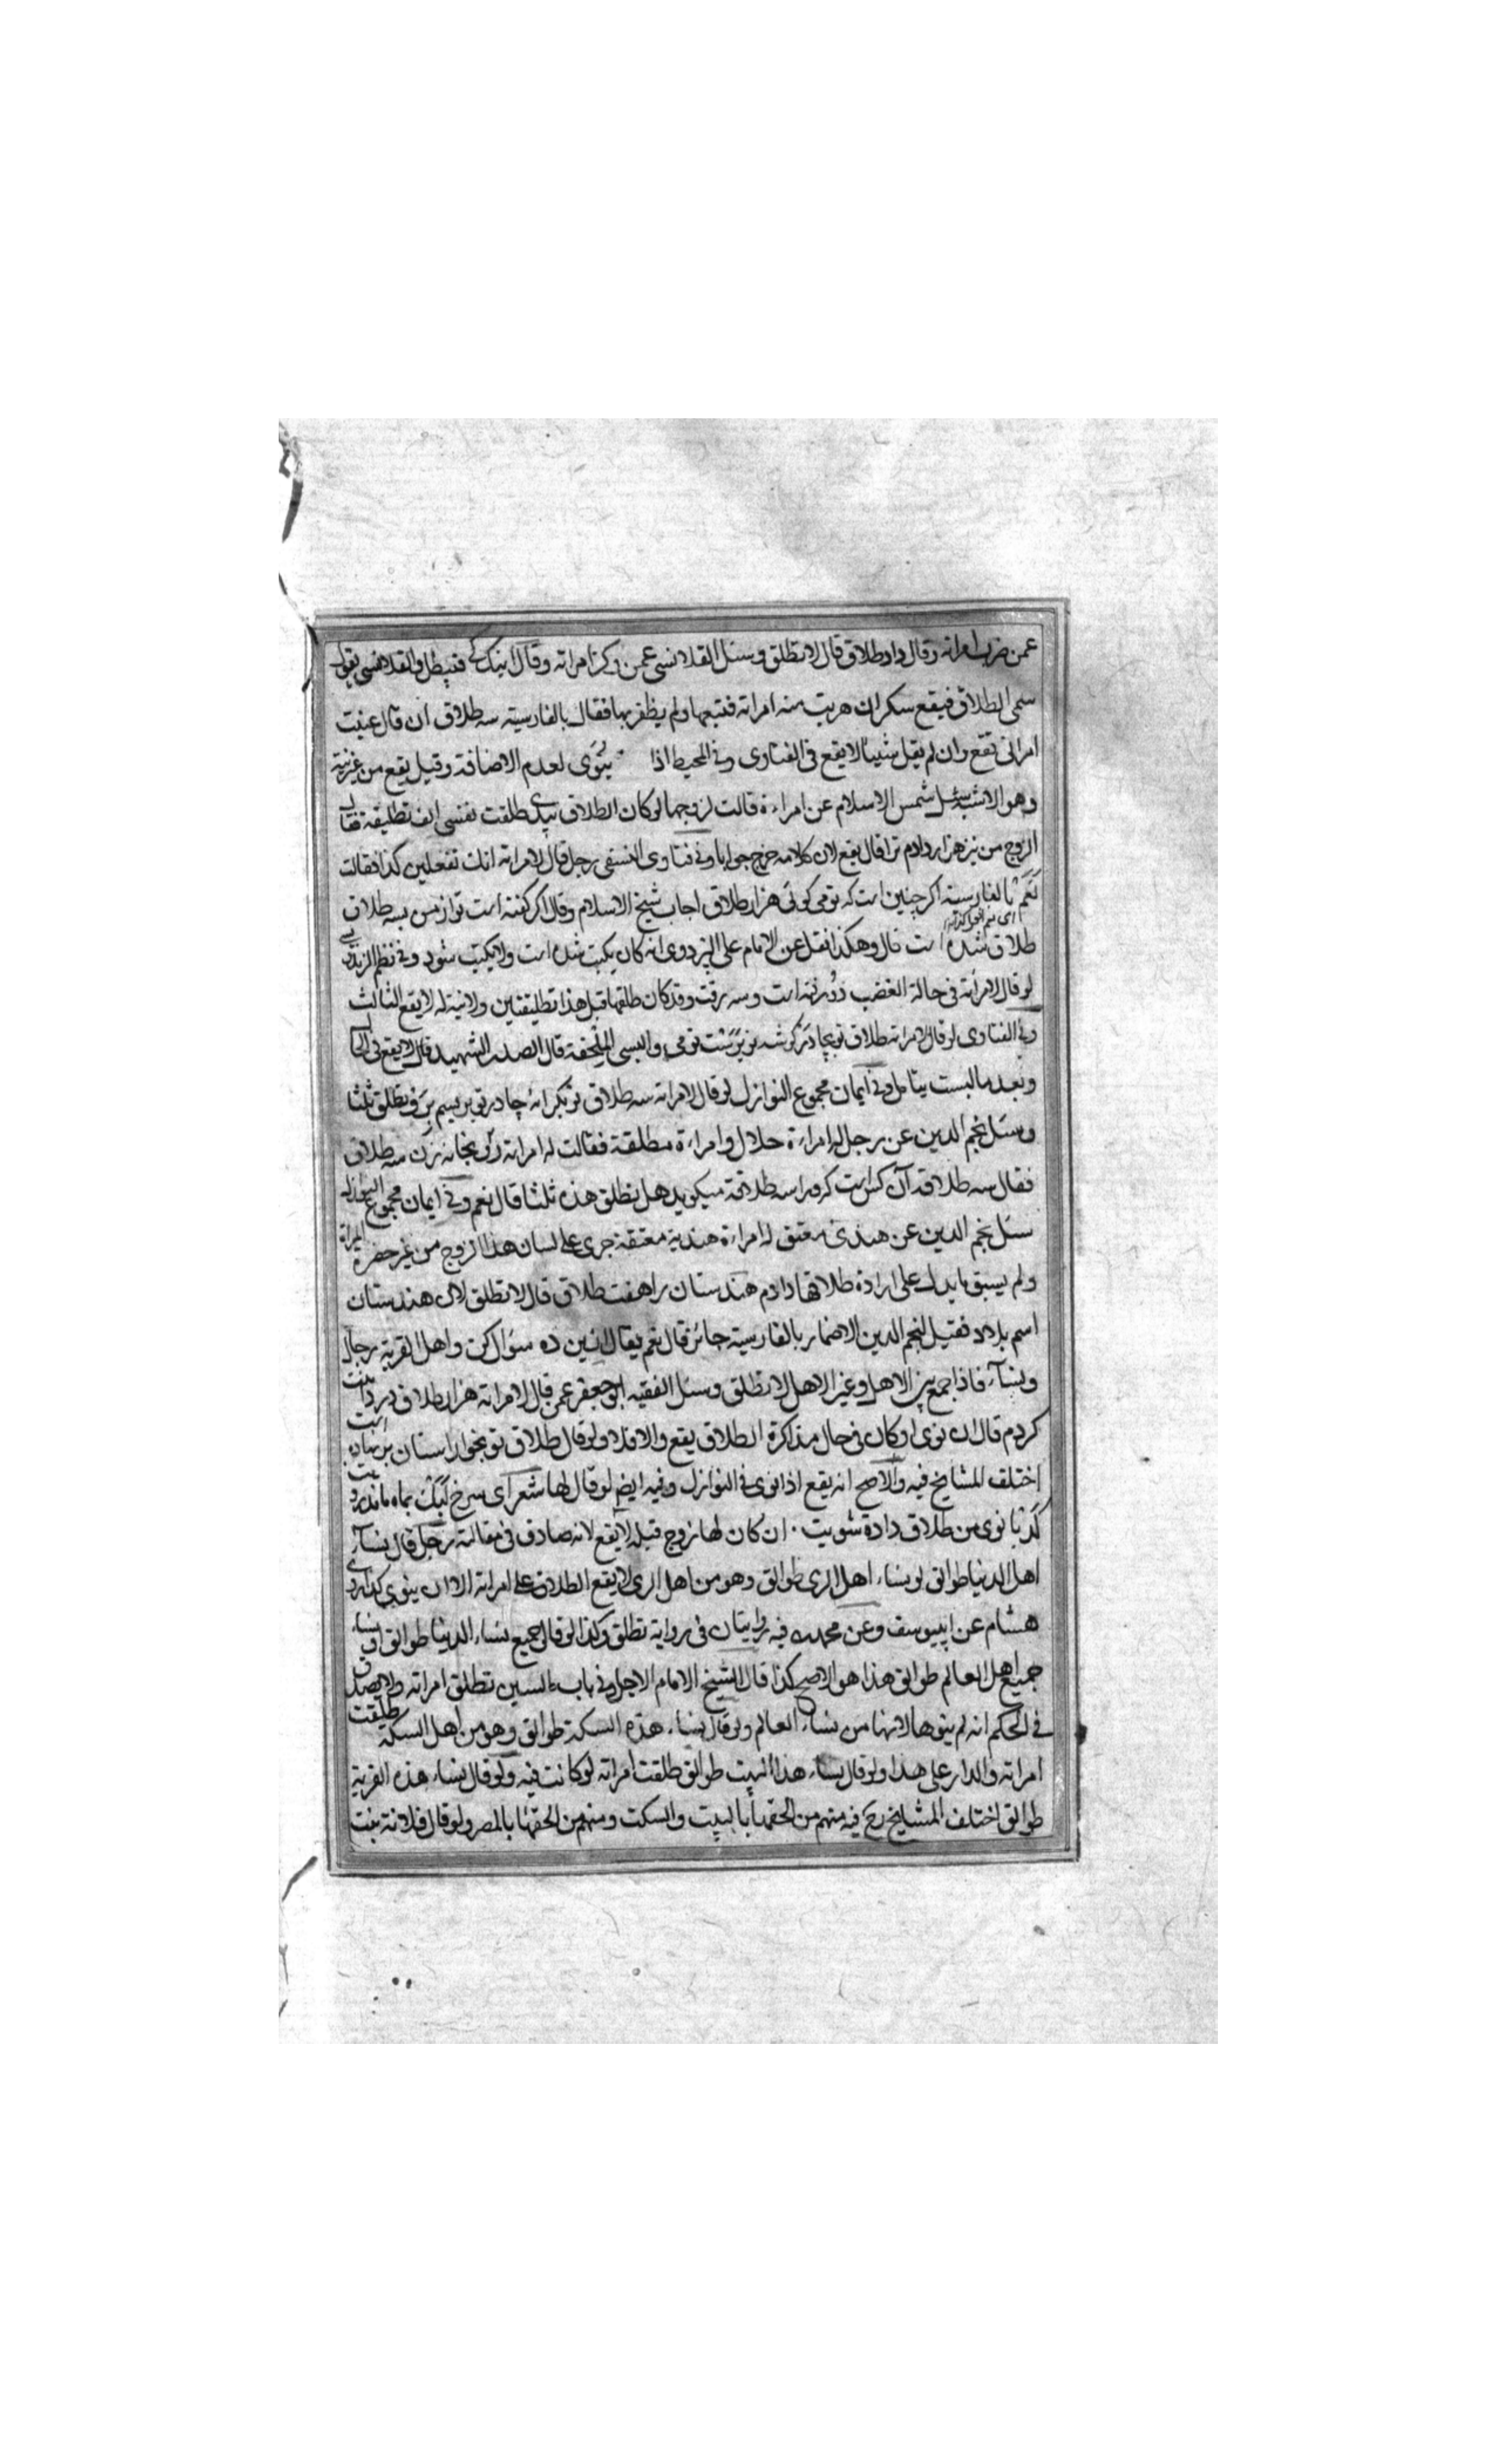 عمن ضرب امراته وقال داد طلاق قال لا تطلق وسئل القلانسي عمن وكز امراته وقال اينك يكے فيبطل والقلانسي يقول
سمى الطلاق فيقع سكران هربت منه امراته فتبعها ولم يظفر بها فقال بالفارسية سه طلاق ان قال عنيت
امراتي تقع وان لم يقل شيئا لا يقع في الفتاوى وفي المحيط اذا ينوى لعدم الاضافة وقيل يقع من غير نية
وهو الاشبه سئل شمس الاسلام عن امراءة قالت لزوجها لو كان الطلاق بيدي طلقت نفسي الف تطليقة فقال
الزوج من نيز هزار دادم ترا قال يقع لان كلامه خرج جوابا وفي فتاوى النسفي رجل قال لامراته انك تفعلين كذا فقالت
نعم بالفارسية اكر چنين است كه تو مى كوئى هزار طلاق اجاب شيخ الاسلام وقال اكر كفته است تو از من بسه طلاق
طلاق شده است قال وهكذا نقل عن الامام على البزدوى انه كان يكتب شده است ولا يكتب شود وفي نظم الزندويسي
لو قال لامراته في حالة الغضب دو رفته است وسه رفت وقد كان طلقها قبل هذا تطليقتين ولا نية له لا يقع الثالث
وفي الفتاوى لو قال لامراته طلاق تو والبسي الملحفة قال الصدر الشهيد قال لا يقع في الحال
وبعد ما لبست يتامل وفي ايمان مجموع النوازل لو قال لامراته سه طلاق تو بكرانه چادر تو بر بستم برو تطلق ثلثا
وسئل نجم الدين عن رجل له امراءة حلال وامراءة مطلقة فقالت له امراته زن سه طلاق
فقال سه طلاقه آن كس است كه مرا سه طلاقه ميكويد هل تطلق هذه ثلثا قال نعم وفي ايمان مجموع النوازل
سئل نجم الدين عن هندي معتق له امراءة هندية معتقة جرى على لسان هذا الزوج من غير حضرة المراة
ولم يسبق ما يدل على ارادة طلاقها دادم هندستان را هفت طلاق قال لا تطلق لان هندستان
اسم بلاد فقيل لنجم الدين الاضمار بالفارسية جائز قال نعم يقال ازين ده سؤال كن واهل القرية رجال
ونساء فاذا جمع بين الاهل وغير الاهل لا تطلق وسئل الفقيه ابو جعفر عمن قال لامراته هزار طلاق در دامنت
كردم قال ان نوى او كان في حال مذاكرة الطلاق يقع والا فلا ولو قال طلاق تو است
اختلف المشايخ فيه والاصح انه يقع اذا نوى في النوازل وفيه ايض لو قال لها شعر اى سرخ لبت بماه ماند رويت
كدبانوى من طلاق داده شويت ان كان لها زوج قبله لا يقع لانه صادق في مقالته رجل قال نساء
اهل الدنيا طوالق او نساء اهل الرى طوالق وهو من اهل الرى لا يقع الطلاق على امراته الا ان ينوي كذا روى
هشام عن ابييوسف وعن محمد فيه روايتان في رواية تطلق وكذا لو قال جميع نساء الدنيا طوالق او نساء
جميع اهل العالم طوالق هذا هو الاصح كذا قال الشيخ الامام الاجل وفي باب السين تطلق امراته ولا يصدق
في الحكم انه لم ينوها لانها من نساء العالم ولو قال نساء هذه السكة طوالق وهو من اهل السكة طلقت
امراته والدار على هذا ولو قال نساء هذا البيت طوالق طلقت امراته لو كانت فيه ولو قال نساء هذه القرية
طوالق اختلف المشايخ رح فيه منهم من الحقها بالبيت والسكت ومنهم من الحقها بالمصر ولو قال فلانة بنت